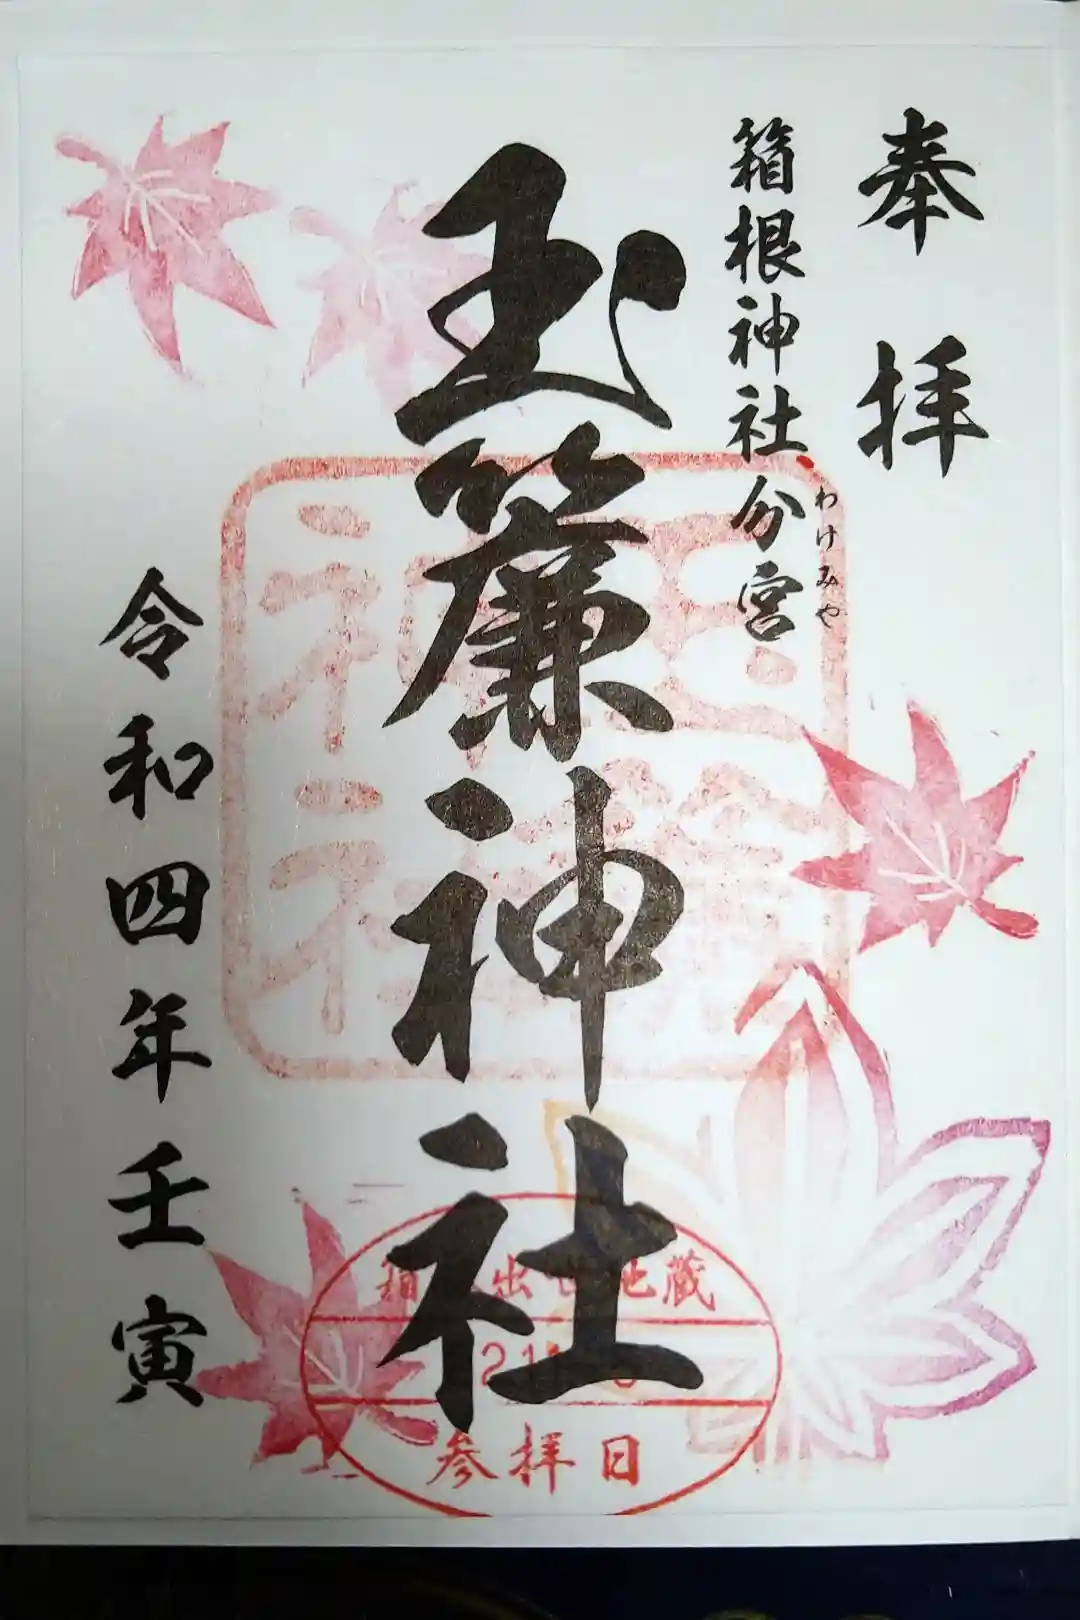 奉拝
箱根神社、分宮
わけみや
玉簾神社
令和四年壬寅
玉簾神社
出世地蔵
参拝日